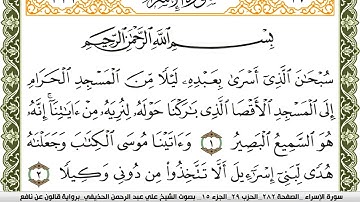 بِسْمِ اللَّهِ الرَّحْمَٰنِ الرَّحِيمِ
سُبْحَانَ الَّذِي أَسْرَىٰ بِعَبْدِهِ لَيْلًا مِّنَ الْمَسْجِدِ الْحَرَامِ
إِلَى الْمَسْجِدِ الْأَقْصَا الَّذِي بَارَكْنَا حَوْلَهُ لِنُرِيَهُ مِنْ ءَايَاتِنَا إِنَّهُ
هُوَ السَّمِيعُ الْبَصِيرُ ١ وَءَاتَيْنَا مُوسَى الْكِتَابَ وَجَعَلْنَاهُ
هُدًى لِّبَنِي إِسْرَاءِيلَ أَلَّا تَتَّخِذُوا مِن دُونِي وَكِيلًا ٢
سورة الإسراء_ الصفحة ٢٨٢_ الحزب ٢٩_ الجزء ١٥_ بصوت الشيخ علي عبد الرحمن الحذيفي_ برواية قالون عن نافع